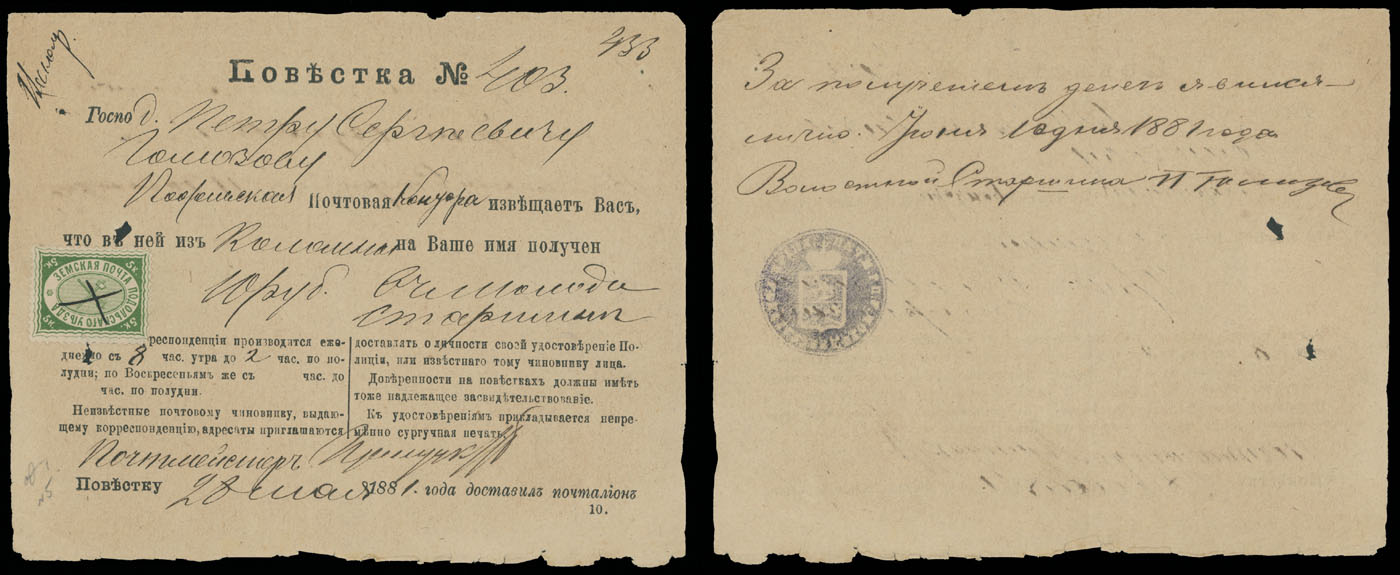 433
Повѣстка № 403.
Господ. Петру Сергѣевичу
Почтовая Контора извѣщаетъ Васъ,
что въ ней изъ Коломны на Ваше имя получен
10 руб.
Старшины
5к 5к
ЗЕМСКАЯ ПОЧТА ПОДОЛЬСКАГО УѢЗДА
5к 5к
респонденціи производится еже-
дневно съ 8 час. утра до 2 час. по по-
лудни; по Воскресеньямъ же съ час. до
час. по полудни.
Неизвѣстные почтовому чиновнику, выдаю-
щему корреспонденцію, адресаты приглашаются
доставлять о личности своей удостовѣреніе По-
лиціи, или извѣстнаго тому чиновнику лица.
Довѣренности на повѣсткахъ должны имѣть
тоже надлежащее засвидѣтельствованіе.
Къ удостовѣреніямъ прикладывается непре-
мѣнно сургучная печать.
Почтмейстеръ
Повѣстку 28 мая 1881. года доставилъ почталіонъ
10.
За полученіемъ денег явился
лично. Іюня 10 дня 1881 года
Волостной Старшина П